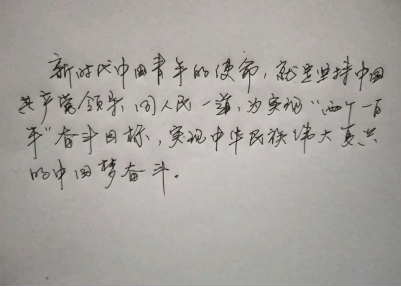 新时代中国青年的使命，就是坚持中国
共产党领导，同人民一道，为实现“两个一百
年”奋斗目标，实现中华民族伟大复兴
的中国梦奋斗.